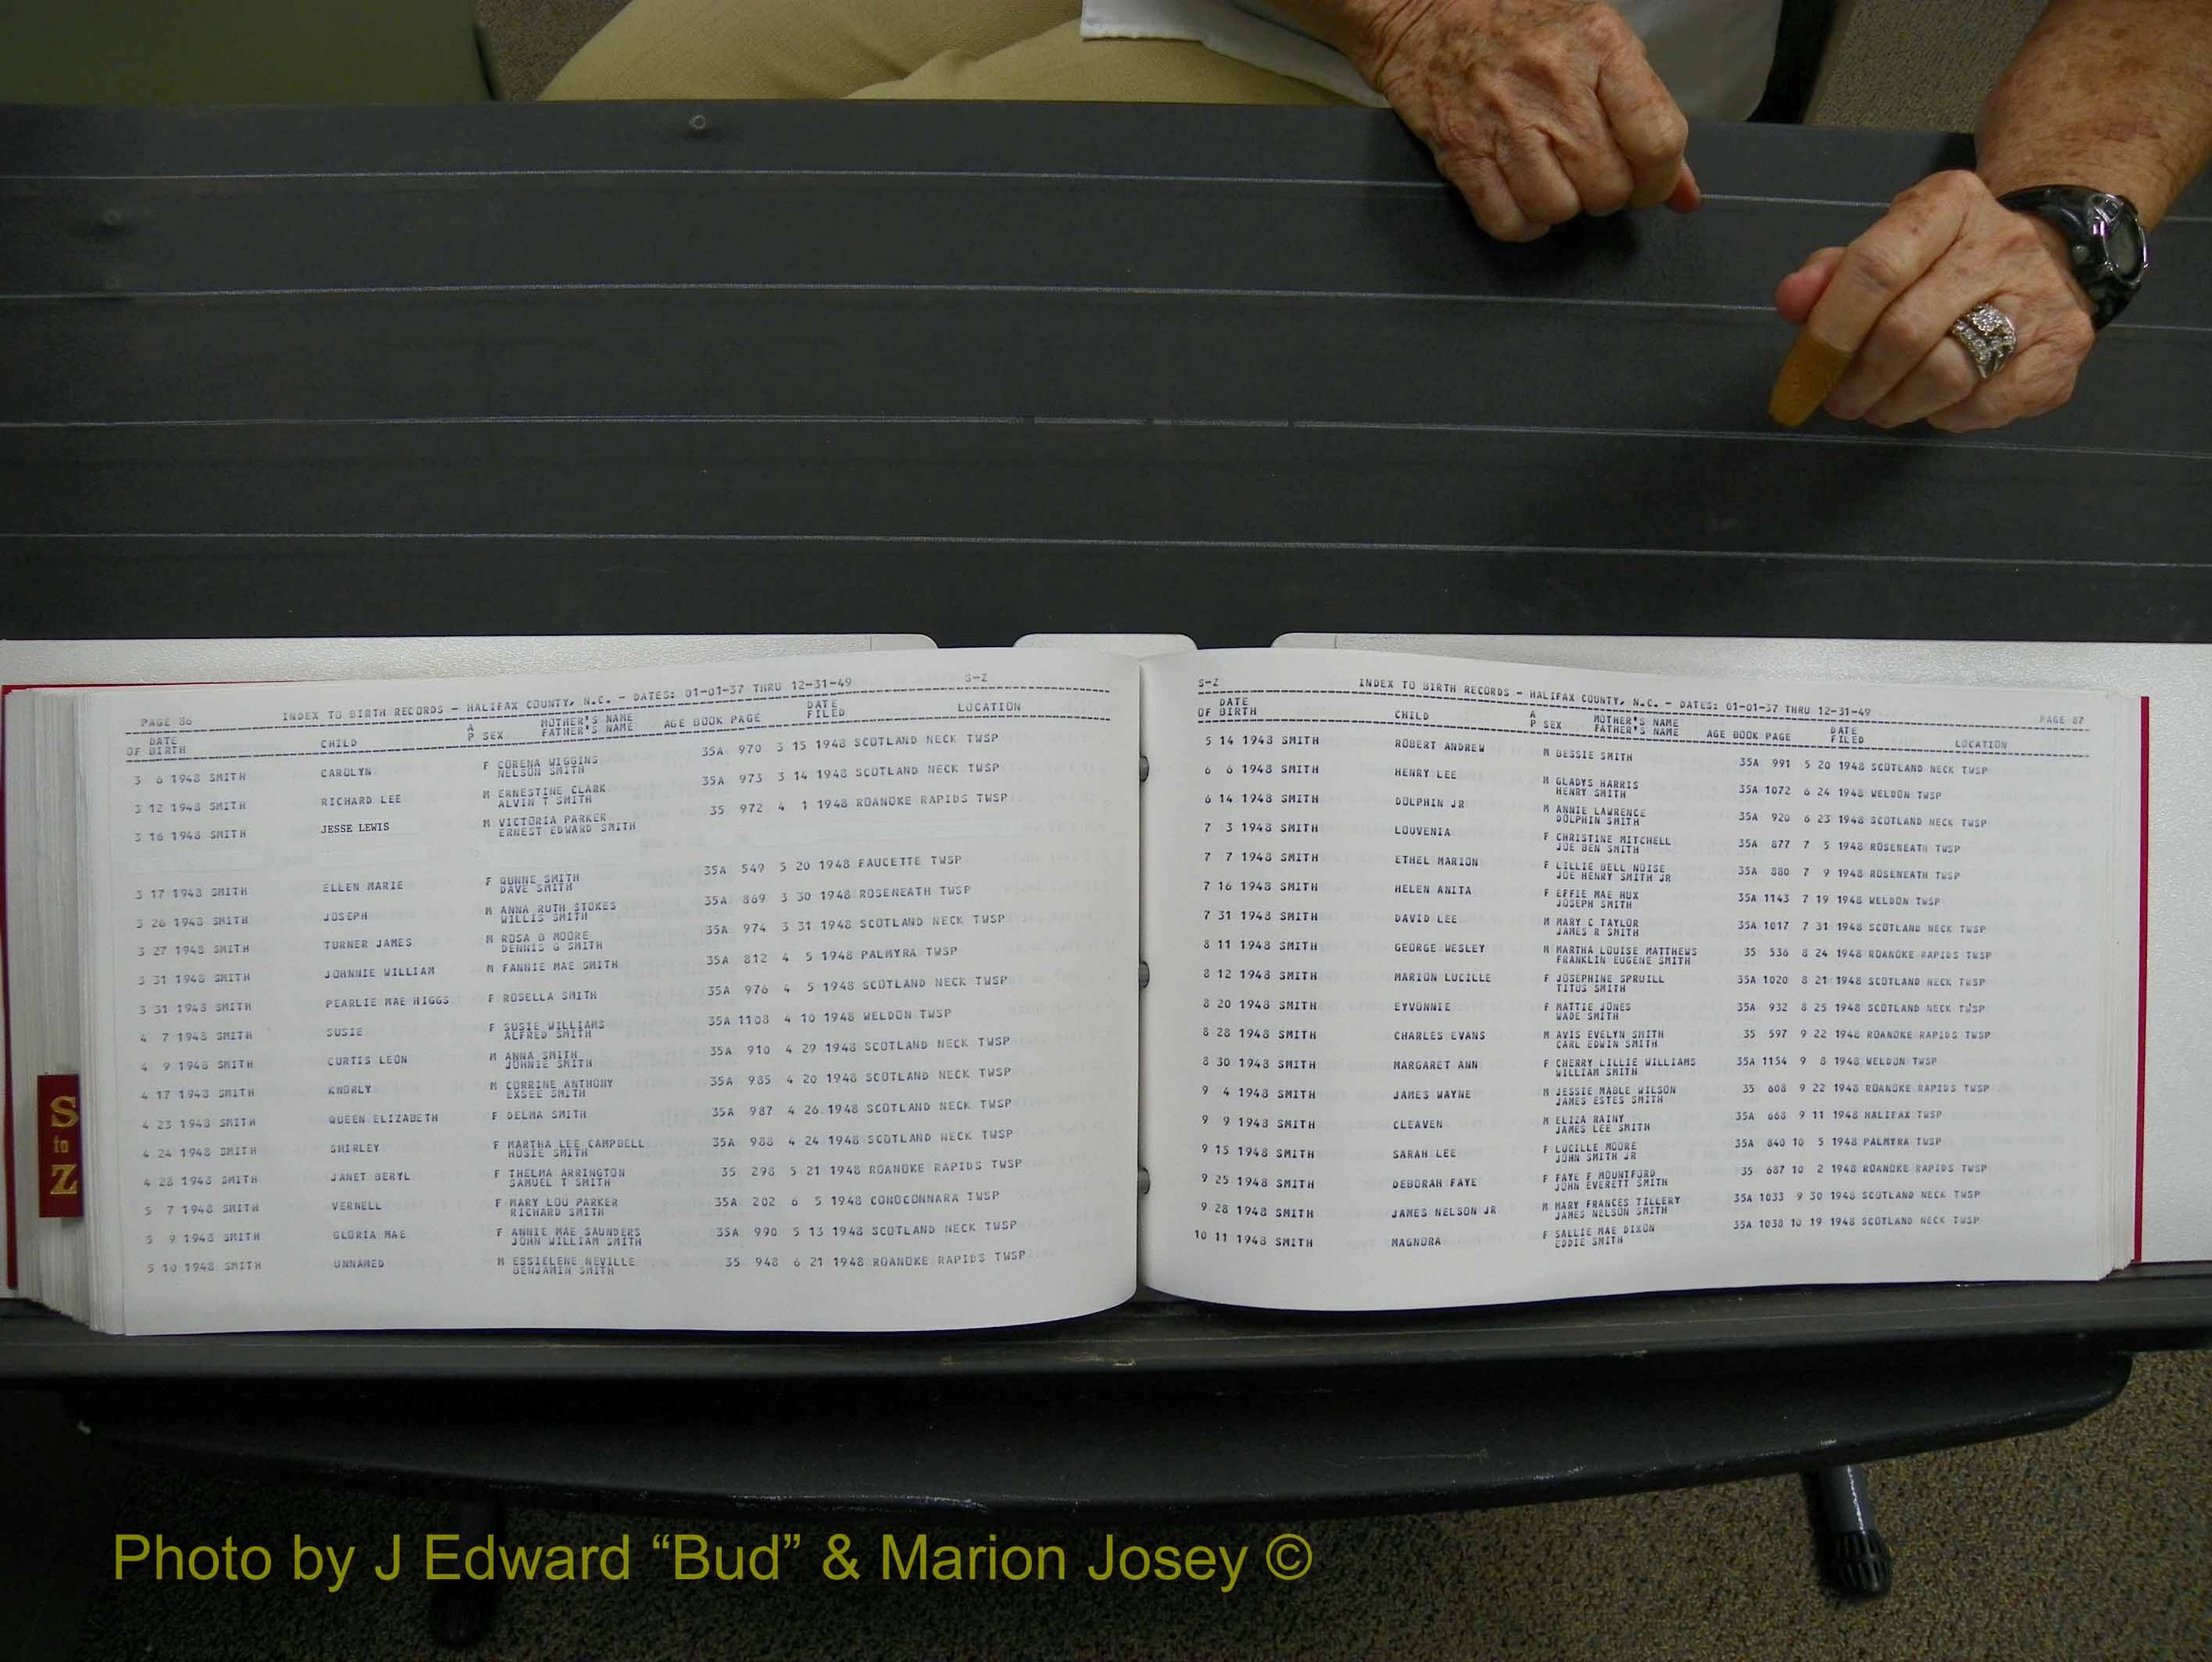 PAGE 86 INDEX TO BIRTH RECORDS - HALIFAX COUNTY, N.C. - DATES: 01-01-37 THRU 12-31-49 S-Z
DATE OF BIRTH CHILD A P SEX MOTHER'S NAME FATHER'S NAME AGE BOOK PAGE DATE FILED LOCATION
3 6 1948 SMITH CAROLYN F CORENA WIGGINS 35A 970 3 15 1948 SCOTLAND NECK TWSP
NELSON SMITH
3 12 1948 SMITH RICHARD LEE M ERNESTINE CLARK 35A 973 3 14 1948 SCOTLAND NECK TWSP
ALVIN T SMITH
3 16 1948 SMITH JESSE LEWIS M VICTORIA PARKER 35 972 4 1 1948 ROANOKE RAPIDS TWSP
ERNEST EDWARD SMITH
3 17 1948 SMITH ELLEN MARIE F QUNNE SMITH 35A 549 5 20 1948 FAUCETTE TWSP
DAVE SMITH
3 26 1948 SMITH JOSEPH M ANNA RUTH STOKES 35A 869 3 30 1948 ROSENEATH TWSP
WILLIS SMITH
3 27 1948 SMITH TURNER JAMES M ROSA B MOORE 35A 974 3 31 1948 SCOTLAND NECK TWSP
DENNIS G SMITH
3 31 1948 SMITH JOHNNIE WILLIAM M FANNIE MAE SMITH 35A 812 4 5 1948 PALMYRA TWSP
3 31 1948 SMITH PEARLIE MAE HIGGS F ROSELLA SMITH 35A 976 4 5 1948 SCOTLAND NECK TWSP
4 7 1948 SMITH SUSIE F SUSIE WILLIAMS 35A 1108 4 10 1948 WELDON TWSP
ALFRED SMITH
4 9 1948 SMITH CURTIS LEON M ANNA SMITH 35A 910 4 29 1948 SCOTLAND NECK TWSP
JOHNIE SMITH
4 17 1948 SMITH KNORLY M CORRINE ANTHONY 35A 985 4 20 1948 SCOTLAND NECK TWSP
EXSEE SMITH
4 23 1948 SMITH QUEEN ELIZABETH F DELMA SMITH 35A 987 4 26 1948 SCOTLAND NECK TWSP
4 24 1948 SMITH SHIRLEY F MARTHA LEE CAMPBELL 35A 988 4 24 1948 SCOTLAND NECK TWSP
HOSIE SMITH
4 28 1948 SMITH JANET BERYL F THELMA ARRINGTON 35 298 5 21 1948 ROANOKE RAPIDS TWSP
SAMUEL T SMITH
5 7 1948 SMITH VERNELL F MARY LOU PARKER 35A 202 6 5 1948 CONOCONNARA TWSP
RICHARD SMITH
5 9 1948 SMITH GLORIA MAE F ANNIE MAE SAUNDERS 35A 990 5 13 1948 SCOTLAND NECK TWSP
JOHN WILLIAM SMITH
5 10 1948 SMITH UNNAMED M ESSIELENE NEVILLE 35 948 6 21 1948 ROANOKE RAPIDS TWSP
BENJAMIN SMITH
S-Z INDEX TO BIRTH RECORDS - HALIFAX COUNTY, N.C. - DATES: 01-01-37 THRU 12-31-49 PAGE 87
DATE OF BIRTH CHILD A P SEX MOTHER'S NAME FATHER'S NAME AGE BOOK PAGE DATE FILED LOCATION
5 14 1948 SMITH ROBERT ANDREW M BESSIE SMITH 35A 991 5 20 1948 SCOTLAND NECK TWSP
6 6 1948 SMITH HENRY LEE M GLADYS HARRIS 35A 1072 6 24 1948 WELDON TWSP
HENRY SMITH
6 14 1948 SMITH DOLPHIN JR M ANNIE LAWRENCE 35A 920 6 23 1948 SCOTLAND NECK TWSP
DOLPHIN SMITH
7 3 1948 SMITH LOUVENIA F CHRISTINE MITCHELL 35A 877 7 5 1948 ROSENEATH TWSP
JOE BEN SMITH
7 7 1948 SMITH ETHEL MARION F LILLIE BELL NOISE 35A 880 7 9 1948 ROSENEATH TWSP
JOE HENRY SMITH JR
7 16 1948 SMITH HELEN ANITA F EFFIE MAE HUX 35A 1143 7 19 1948 WELDON TWSP
JOSEPH SMITH
7 31 1948 SMITH DAVID LEE M MARY C TAYLOR 35A 1017 7 31 1948 SCOTLAND NECK TWSP
JAMES R SMITH
8 11 1948 SMITH GEORGE WESLEY M MARTHA LOUISE MATTHEWS 35 536 8 24 1948 ROANOKE RAPIDS TWSP
FRANKLIN EUGENE SMITH
8 12 1948 SMITH MARION LUCILLE F JOSEPHINE SPRUILL 35A 1020 8 21 1948 SCOTLAND NECK TWSP
TITUS SMITH
8 20 1948 SMITH EYVONNIE F MATTIE JONES 35A 932 8 25 1948 SCOTLAND NECK TWSP
WADE SMITH
8 28 1948 SMITH CHARLES EVANS M AVIS EVELYN SMITH 35 597 9 22 1948 ROANOKE RAPIDS TWSP
CARL EDWIN SMITH
8 30 1948 SMITH MARGARET ANN F CHERRY LILLIE WILLIAMS 35A 1154 9 8 1948 WELDON TWSP
WILLIAM SMITH
9 4 1948 SMITH JAMES WAYNE M JESSIE MABLE WILSON 35 608 9 22 1948 ROANOKE RAPIDS TWSP
JAMES ESTES SMITH
9 9 1948 SMITH CLEAVEN M ELIZA RAINY 35A 668 9 11 1948 HALIFAX TWSP
JAMES LEE SMITH
9 15 1948 SMITH SARAH LEE F LUCILLE MOORE 35A 840 10 5 1948 PALMYRA TWSP
JOHN SMITH JR
9 25 1948 SMITH DEBORAH FAYE F FAYE F MOUNTFORD 35 687 10 2 1948 ROANOKE RAPIDS TWSP
JOHN EVERETT SMITH
9 28 1948 SMITH JAMES NELSON JR M MARY FRANCES TILLERY 35A 1033 9 30 1948 SCOTLAND NECK TWSP
JAMES NELSON SMITH
10 11 1948 SMITH MAGNORA F SALLIE MAE DIXON 35A 1038 10 19 1948 SCOTLAND NECK TWSP
EDDIE SMITH
S
to
Z
Photo by J Edward “Bud” & Marion Josey ©